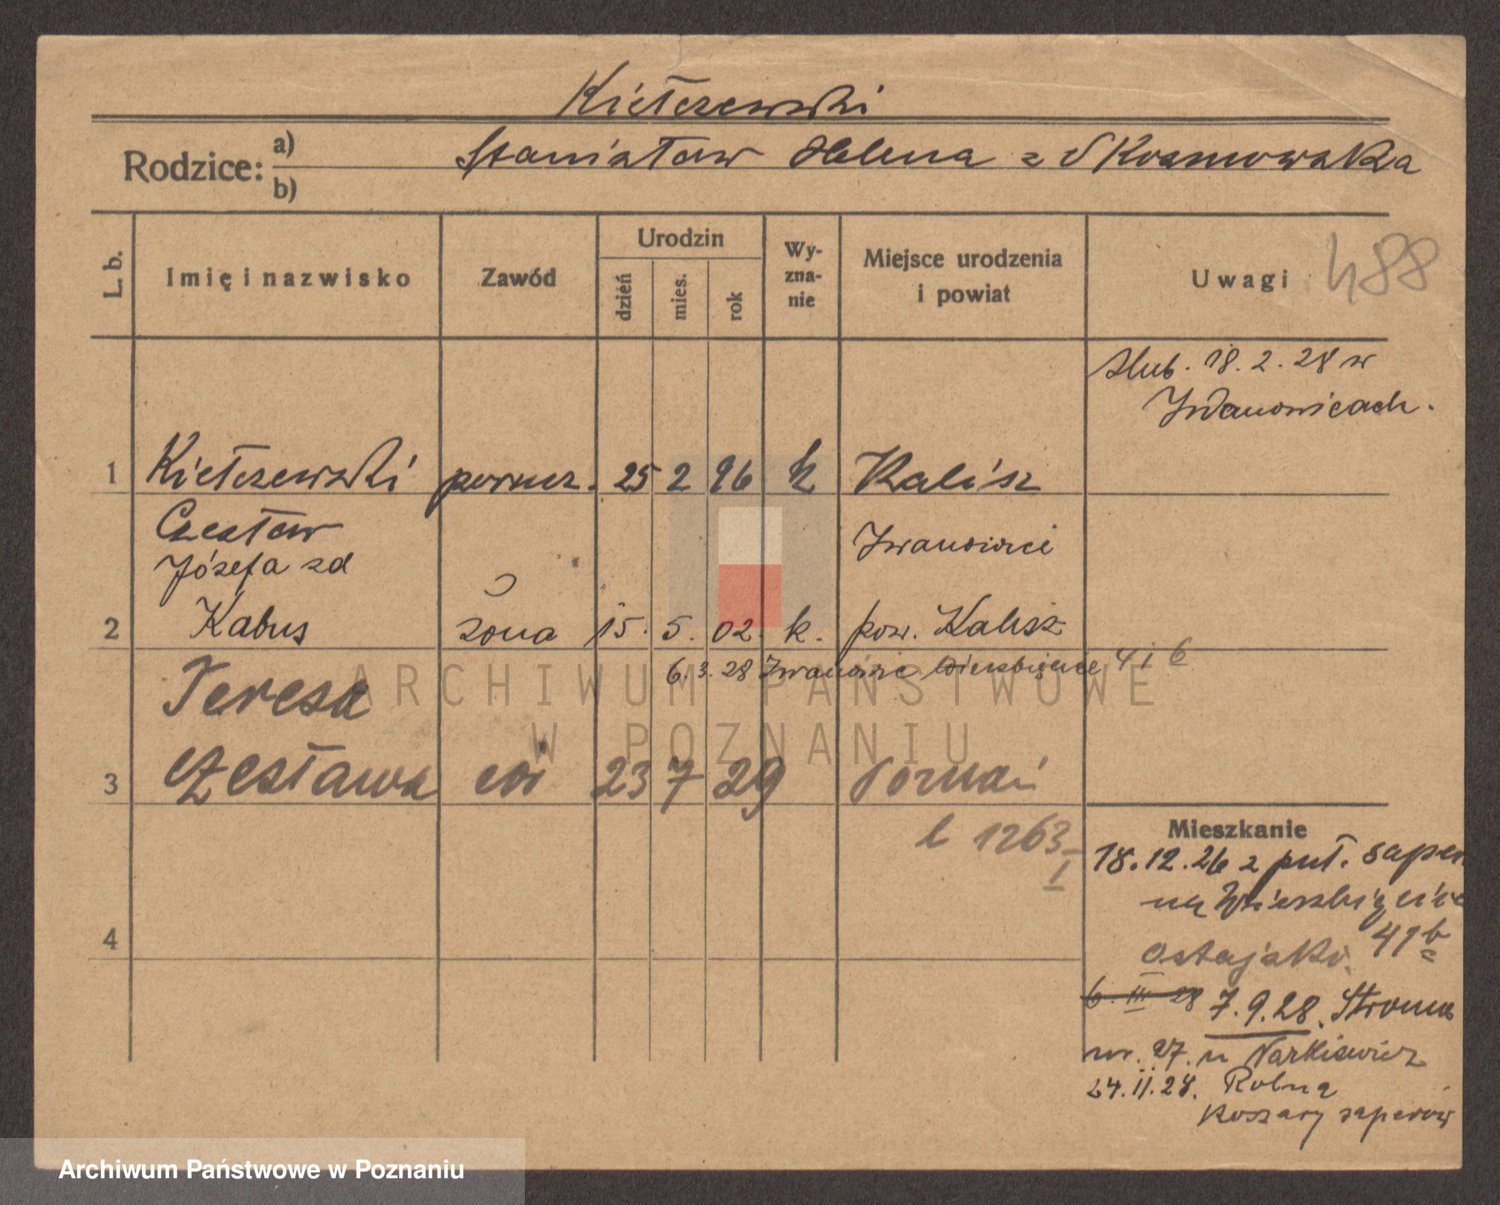 Kiełczewski
Rodzice: a) Stanisław Helena z Skosmowska
b)
L. b.
Imię i nazwisko
Zawód
Urodzin
dzień
mies.
rok
Wy-
zna-
nie
Miejsce urodzenia
i powiat
Uwagi
488
ślub. 18. 2. 28 w
Iwanowicach.
1 Kiełczewski porucz. 25 2 96 k Kalisz
Czesław
Józefa zd
Iwanowice
2 Kabus żona 15. 5. 02. k. pow. Kalisz
6. 3. 28 Iwanowic Wierzbięcice 4 i 6
Teresa
3 Czesława 23 7 29 Poznań
l 1263
I
4
Mieszkanie
18.12.26 z puł. saper
na Wierzbięcice
41b
6. III 28 7.9.28. Stroma
nr. 27. u Narkiewicz
24.II.28. Rolna
Koszary saperów
ARCHIWUM PAŃSTWOWE
W POZNANIU
Archiwum Państwowe w Poznaniu